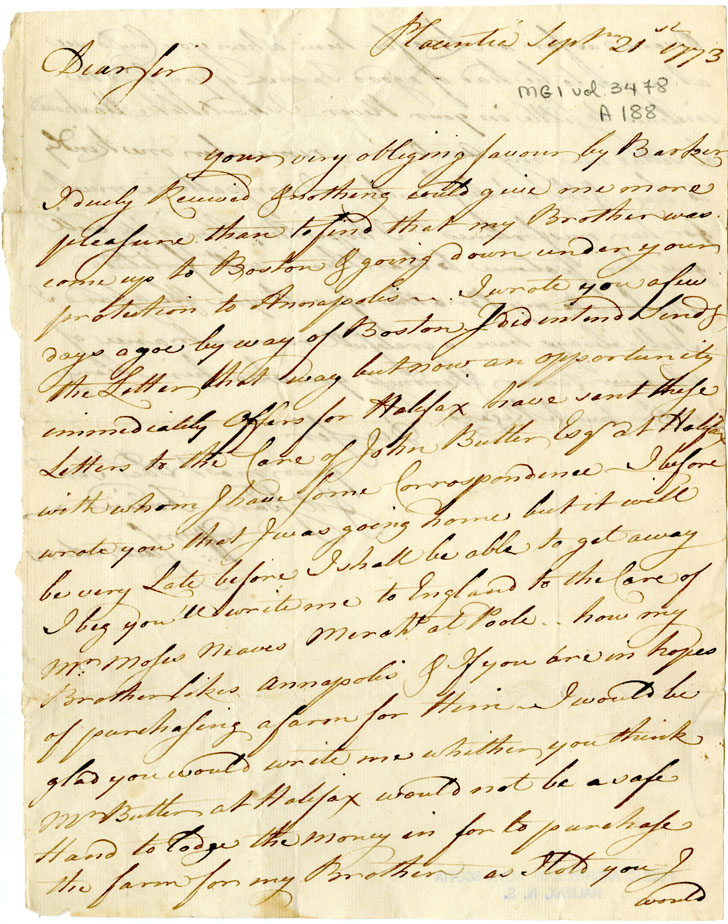 Placentia Septr 21st 1773
Dear Sir
MG1 vol. 3478
A188
your very obliging favour by Barker
I duely Received & nothing could give me more
pleasure than to find that my Brother was
come up to Boston & going down under your
protection to Annapolis ~ I wrote you a few
days agoe by way of Boston I did intend Send
the Letter that way but now an opportunity
immediately Offers for Halifax have sent these
Letters to the Care of John Butler Esqr at Halifax
with whom I have some Correspondence ~ I before
wrote you that I was going home but it will
be very Late before I shall be able to get away
I beg you'll write me to England to the Care of
Mr Moses Neaves Mercht at Poole .. how my
Brother likes Annapolis & If you are in hopes
of purchasing a farm for Him ~ I would be
glad you would write me whither you think
Mr Butler at Halifax would not be a safe
Hand to lodge the money in for to purchase
the farm for my Brother as I told you I
would
HALIFAX, N. S.